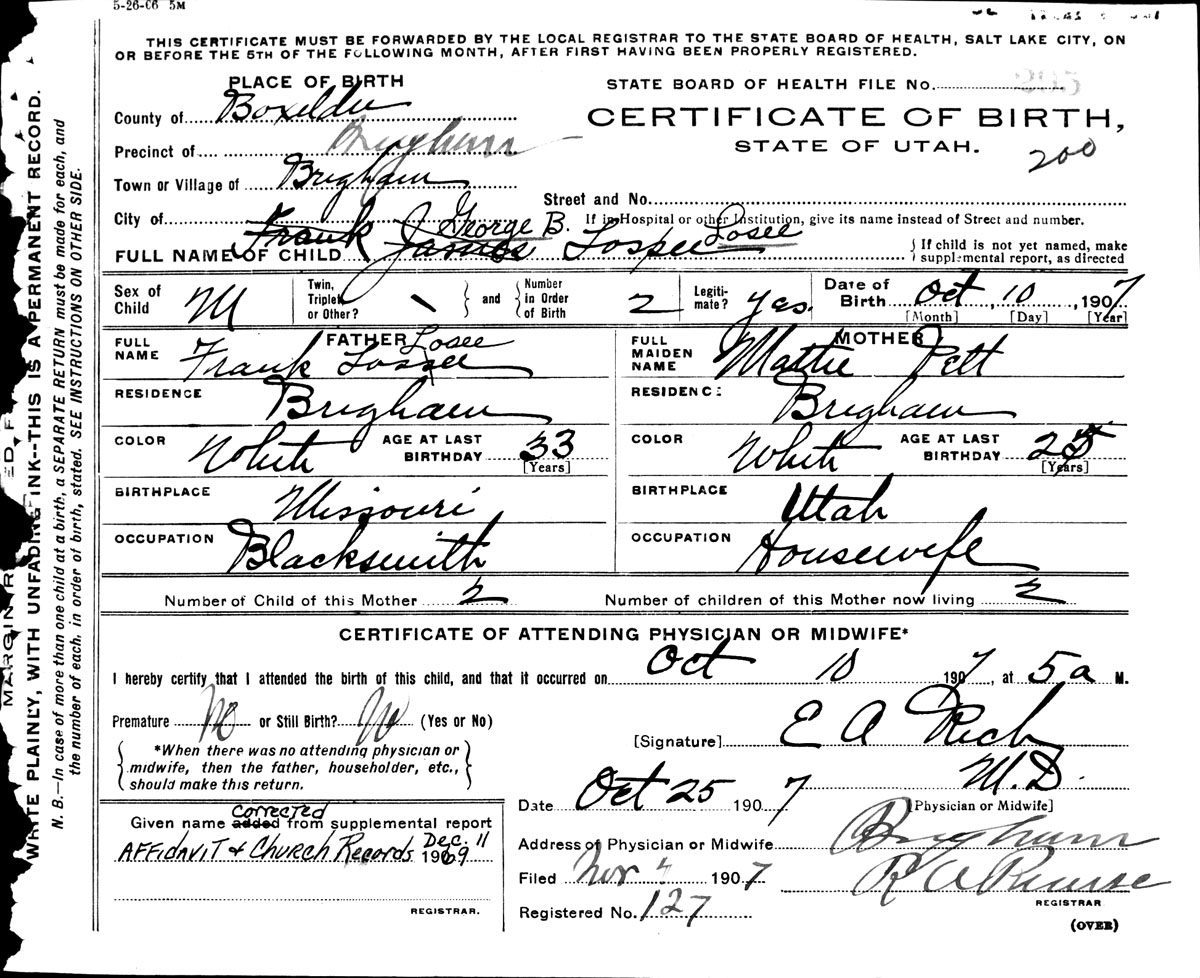 5-26-06 5M
THIS CERTIFICATE MUST BE FORWARDED BY THE LOCAL REGISTRAR TO THE STATE BOARD OF HEALTH, SALT LAKE CITY, ON
OR BEFORE THE 5TH OF THE FOLLOWING MONTH, AFTER FIRST HAVING BEEN PROPERLY REGISTERED.
PLACE OF BIRTH
STATE BOARD OF HEALTH FILE No.
County of Boxelder
CERTIFICATE OF BIRTH,
Precinct of Brigham
STATE OF UTAH.
200
Town or Village of Brigham
Street and No.
City of
If in Hospital or other Institution, give its name instead of Street and number.
George B. Losee
FULL NAME OF CHILD Frank James Lossee
If child is not yet named, make
supplemental report, as directed
Sex of Child M
Twin, Triplet or Other? \ and Number in Order of Birth 2
Legitimate? yes.
Date of Birth Oct 10, 1907
[Month] [Day] [Year]
FATHER
FULL NAME Frank Lossee Losee
MOTHER
FULL MAIDEN NAME Mattie Pett
RESIDENCE Brigham
RESIDENCE Brigham
COLOR White AGE AT LAST BIRTHDAY 33 [Years]
COLOR White AGE AT LAST BIRTHDAY 25 [Years]
BIRTHPLACE Missouri
BIRTHPLACE Utah
OCCUPATION Blacksmith
OCCUPATION Housewife
Number of Child of this Mother 2
Number of children of this Mother now living 2
CERTIFICATE OF ATTENDING PHYSICIAN OR MIDWIFE*
I hereby certify that I attended the birth of this child, and that it occurred on Oct 10 1907, at 5a M.
Premature No or Still Birth? No (Yes or No)
*When there was no attending physician or
midwife, then the father, householder, etc.,
should make this return.
[Signature] E A Rich
M.D.
[Physician or Midwife]
Date Oct 25 1907
Given name added corrected from supplemental report
AFFidavit & Church Records Dec. 11 1969
REGISTRAR.
Address of Physician or Midwife Brigham
Filed Nov 4 1907
REGISTRAR
Registered No. 127
(OVER)
WRITE PLAINLY, WITH UNFADING INK--THIS IS A PERMANENT RECORD.
N. B.—In case of more than one child at a birth, a SEPARATE RETURN must be made for each, and
the number of each, in order of birth, stated. SEE INSTRUCTIONS ON OTHER SIDE.